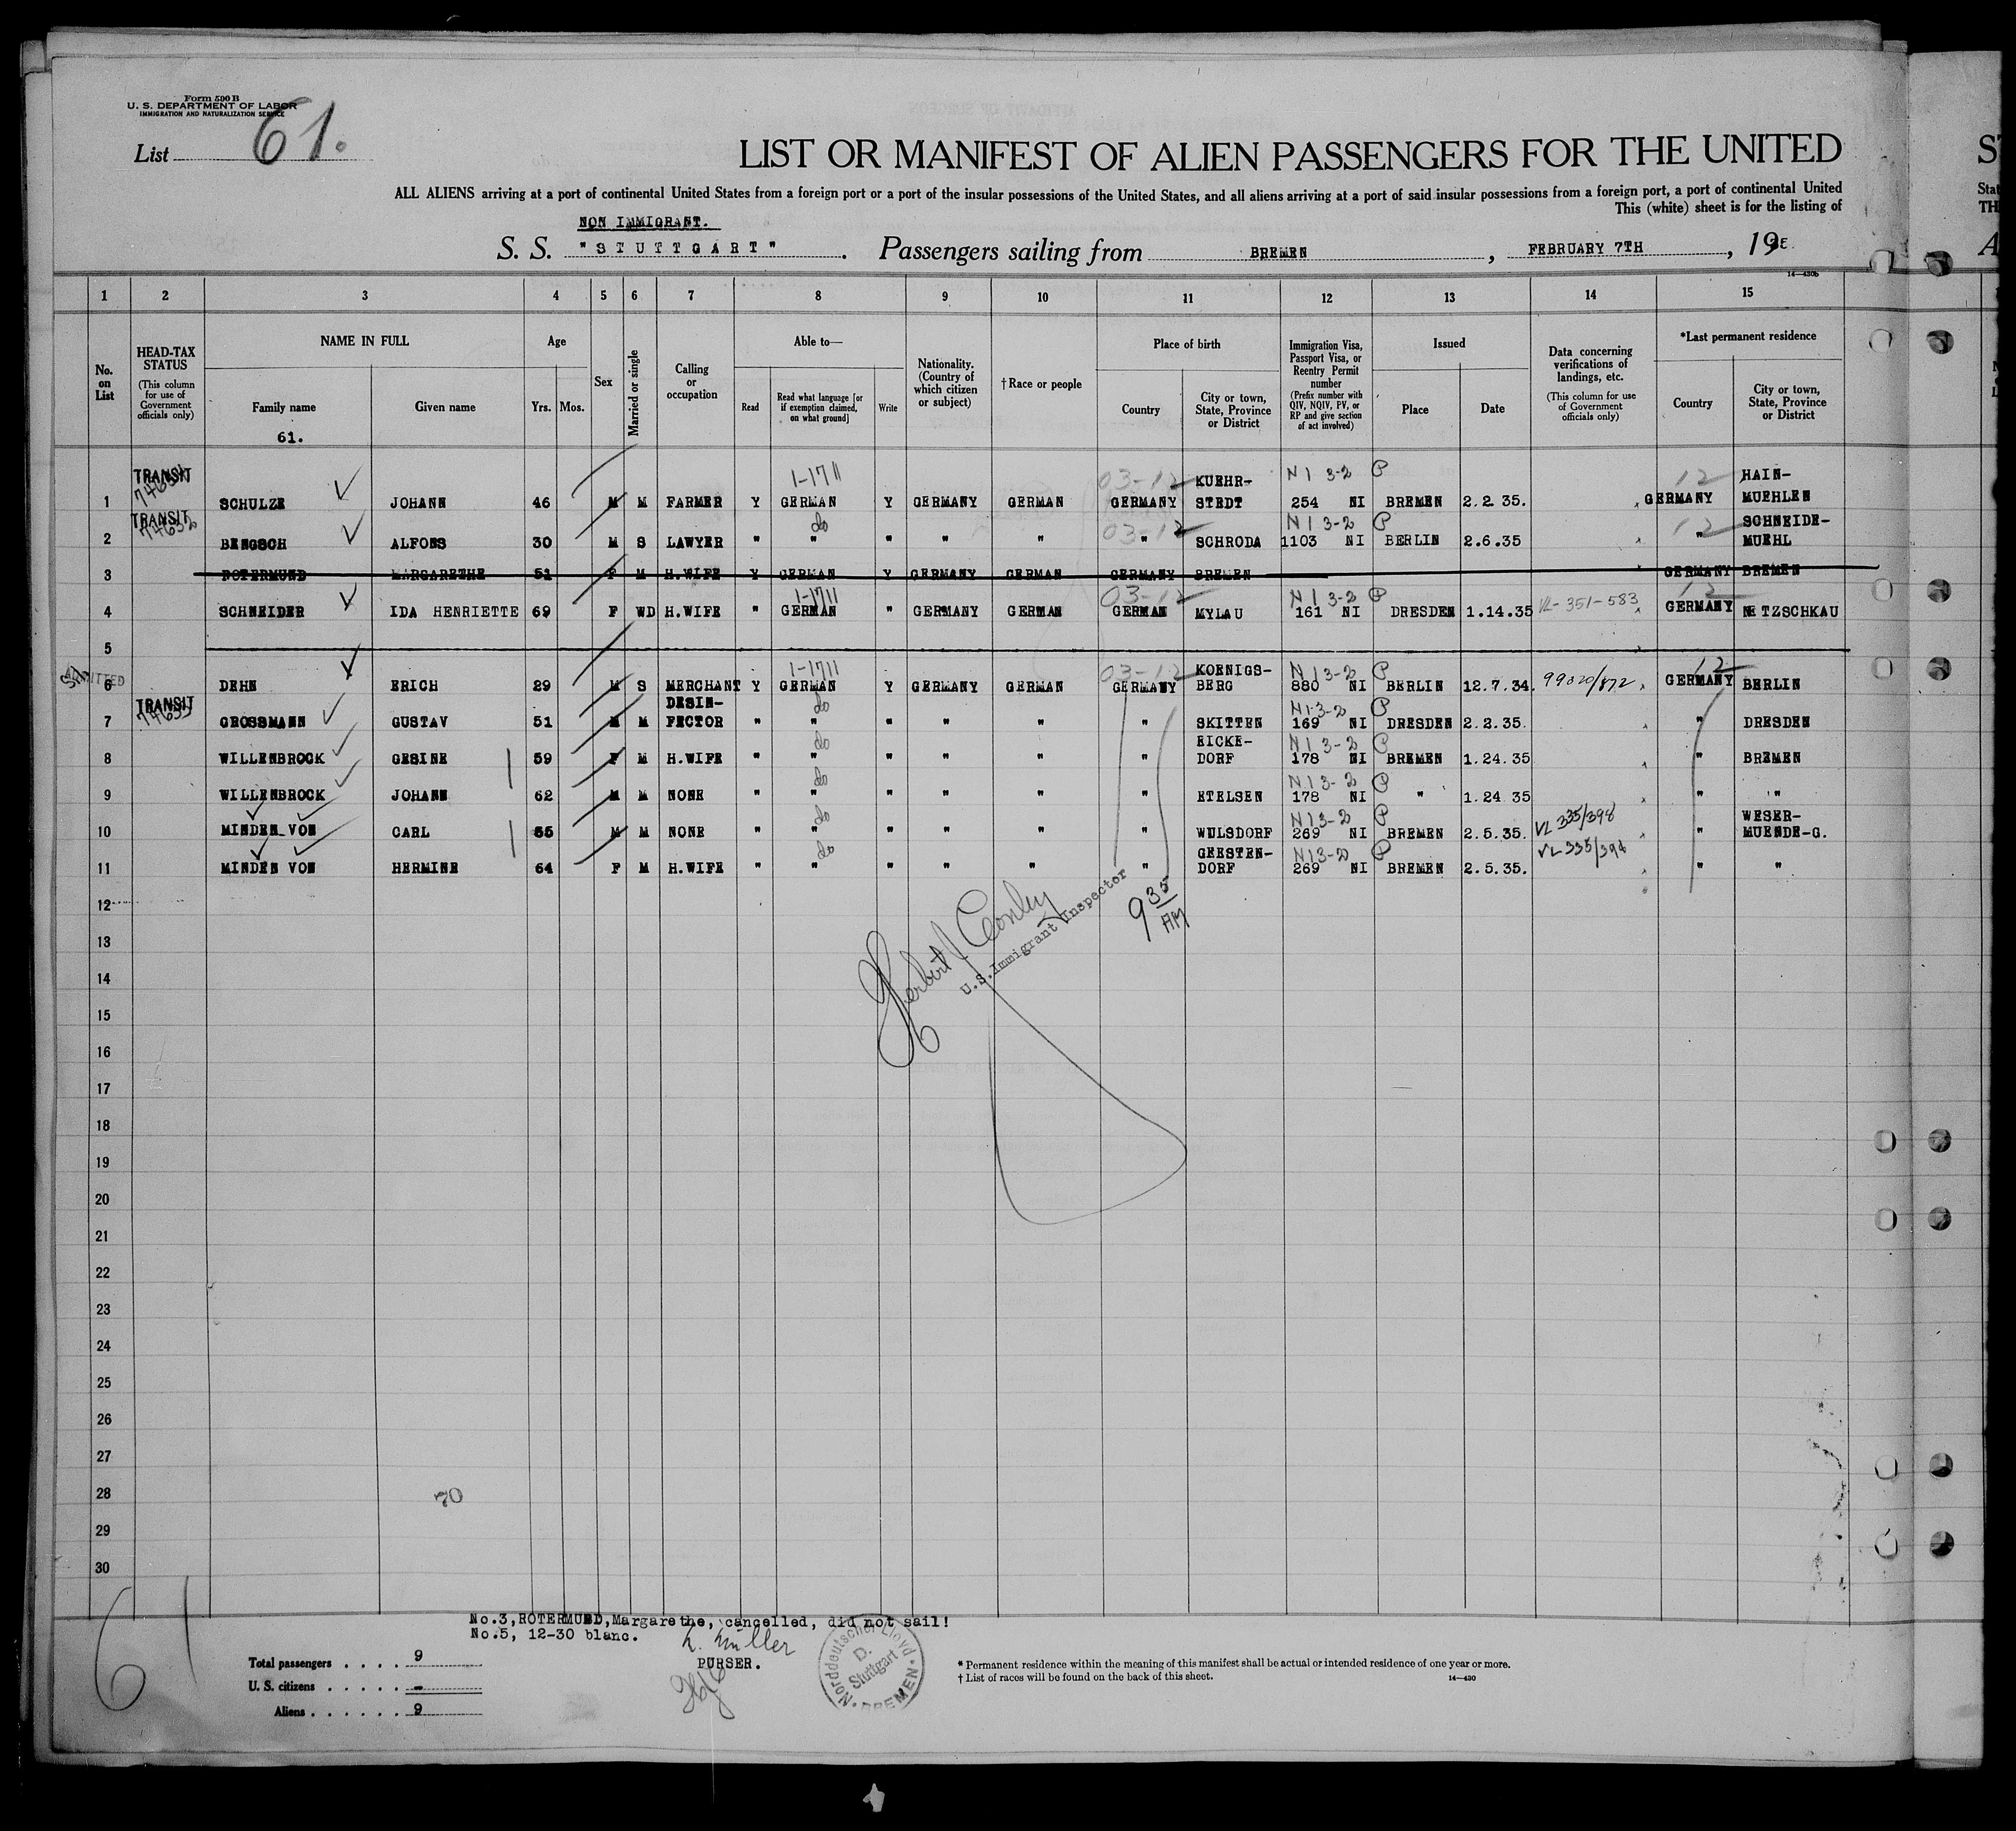 Form 500 B
U. S. DEPARTMENT OF LABOR
IMMIGRATION AND NATURALIZATION SERVICE
List 61.
LIST OR MANIFEST OF ALIEN PASSENGERS FOR THE UNITED
ALL ALIENS arriving at a port of continental United States from a foreign port or a port of the insular possessions of the United States, and all aliens arriving at a port of said insular possessions from a foreign port, a port of continental United
This (white) sheet is for the listing of
NON IMMIGRANT.
S. S. "STUTTGART". Passengers sailing from BREMEN, FEBRUARY 7TH, 19
14—430b
1 2 3 4 5 6 7 8 9 10 11 12 13 14 15
No. on List
HEAD-TAX STATUS (This column for use of Government officials only)
NAME IN FULL Family name Given name
61.
Age Yrs. Mos.
Sex
Married or single
Calling or occupation
Able to— Read Read what language [or if exemption claimed, on what ground] Write
Nationality. (Country of which citizen or subject)
† Race or people
Place of birth Country City or town, State, Province or District
Immigration Visa, Passport Visa, or Reentry Permit number (Prefix number with QIV, NQIV, PV, or RP and give section of act involved)
Issued Place Date
Data concerning verifications of landings, etc. (This column for use of Government officials only)
*Last permanent residence Country City or town, State, Province or District
TRANSIT 1-1711 03-12 KUEHR- NI 3-2 P 12 HAIN-
1 SCHULZE JOHANN 46 M M FARMER Y GERMAN Y GERMANY GERMAN GERMANY STEDT 254 NI BREMEN 2.2.35. GERMANY MUEHLEN
TRANSIT 74632 do 03-12 NI 3-2 P 12 SCHNEIDE-
2 BENGSCH ALFONS 30 M S LAWYER " " " " " " SCHRODA 1103 NI BERLIN 2.6.35 " MUEHL
3 ROTERMUND MARGARETHE 51 F M H.WIFE Y GERMAN Y GERMANY GERMAN GERMANY BREMEN GERMANY BREMEN
1-1711 03-12 NI 3-2 P 12
4 SCHNEIDER IDA HENRIETTE 69 F WD H.WIFE " GERMAN " GERMANY GERMAN GERMAN MYLAU 161 NI DRESDEN 1.14.35 VL-351-583 GERMANY NETZSCHKAU
5
ADMITTED 1-1711 03-12 KOENIGS- NI 3-2 P 12
6 DEHN ERICH 29 M S MERCHANT Y GERMAN Y GERMANY GERMAN GERMANY BERG 880 NI BERLIN 12.7.34. 99020/872 GERMANY BERLIN
TRANSIT 74633 DESIN- do NI 3-2 P
7 GROSSMANN GUSTAV 51 M M FECTOR " " " " " " SKITTEN 169 NI DRESDEN 2.2.35. " DRESDEN
do EICKE- NI 3-2 P
8 WILLENBROCK GESINE 59 F M H.WIFE " " " " " " DORF 178 NI BREMEN 1.24.35 BREMEN
do NI 3-2 P
9 WILLENBROCK JOHANN 62 M M NONE " " " " " " ETELSEN 178 NI " 1.24 35 " "
do NI 3-2 P VL 335/398 WESER-
10 MINDEN VON CARL 65 M M NONE " " " " " " WULSDORF 269 NI BREMEN 2.5.35. " MUENDE-G.
do GEESTEN- NI 3-2 P VL 335/394
11 MINDEN VON HERMINE 64 F M H.WIFE " " " " " " DORF 269 NI BREMEN 2.5.35. " "
12
Herbert J Conley
U.S. Immigrant Inspector
9 35 AM
13
14
15
16
17
18
19
20
21
22
23
24
25
26
27
28 70
29
30
61
No.3, ROTERMUND, Margarethe, cancelled, did not sail!
No.5, 12-30 blanc.
Total passengers . . . . 9
U. S. citizens . . . . . -
Aliens . . . . . . 9
Müller
PURSER.
Norddeutscher Lloyd
D. Stuttgart
BREMEN
* Permanent residence within the meaning of this manifest shall be actual or intended residence of one year or more.
† List of races will be found on the back of this sheet.
14—430